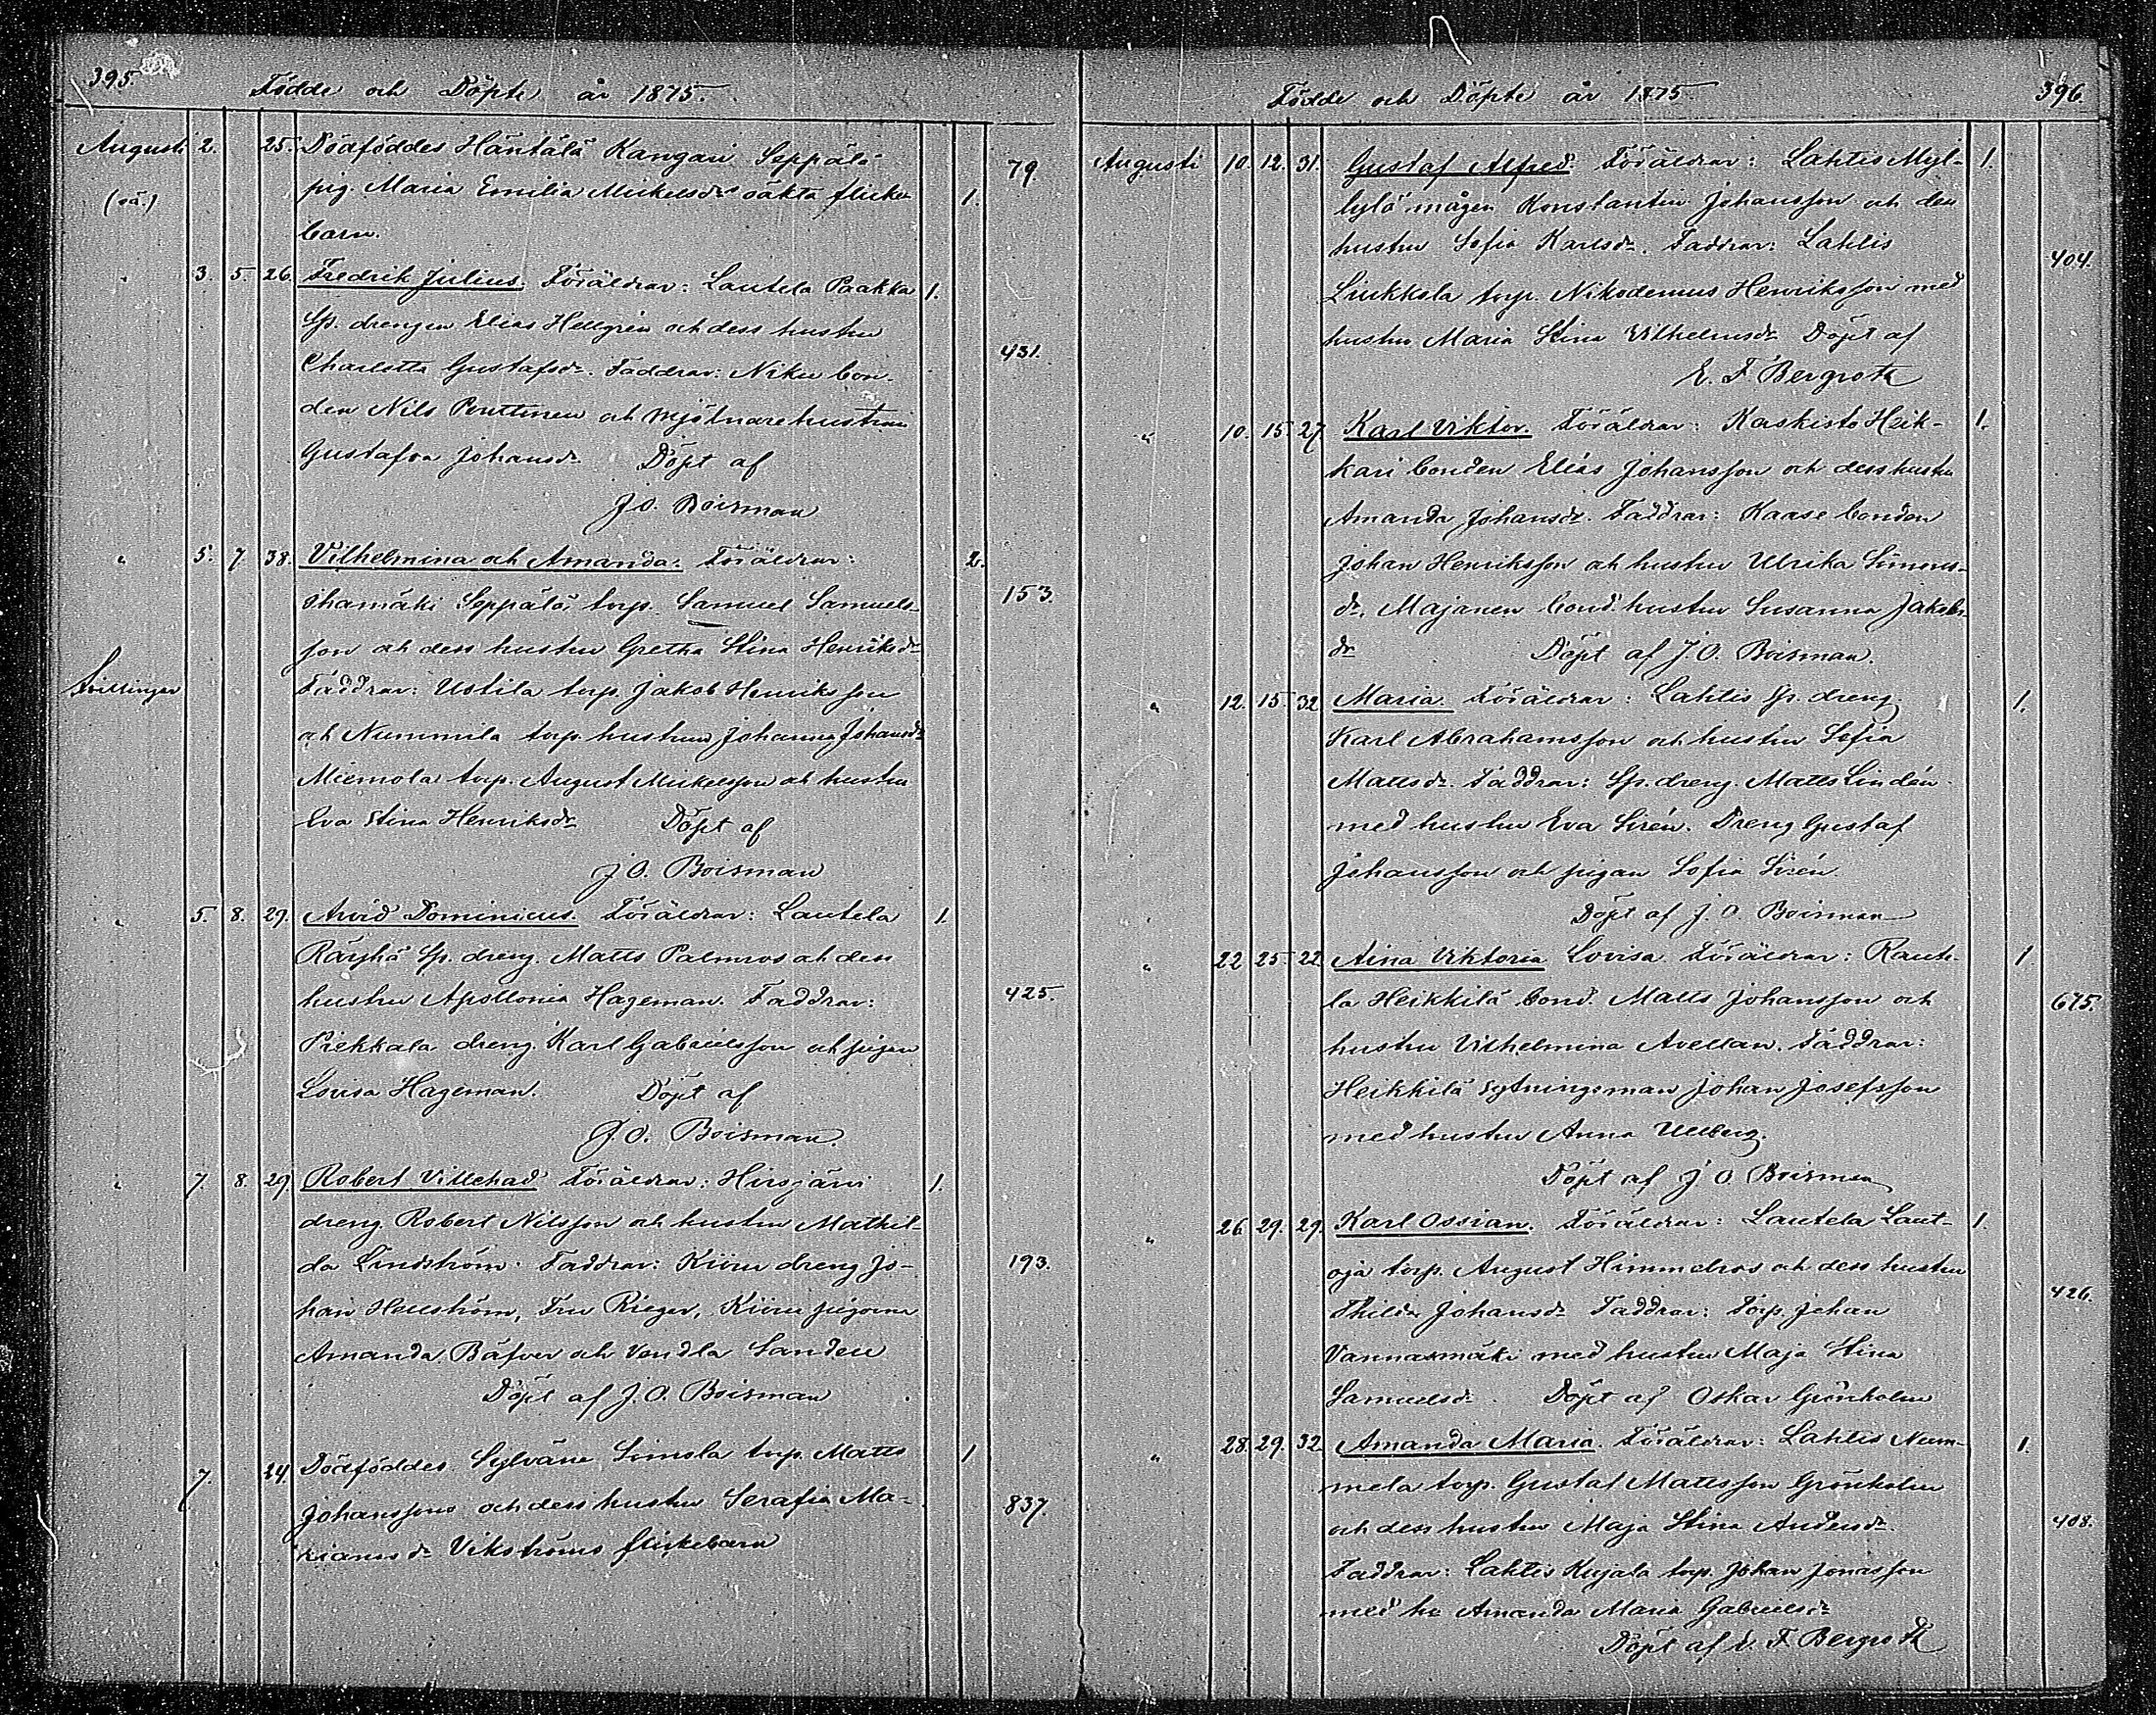 395.
Födde och Döpte år 1875.
Augusti 2. 25. Dödföddes Häntälä Kangari Seppälä
(oä.) pig. Maria Emilia Mickelsdr oäkta flicke- 1. 79
barn.
" 3. 5. 26. Fredrik Julius. Föräldrar: Lautela Paakka 1.
Sp. drengen Elias Hellgrén och dess hustru
Charlotta Gustafsdr. Faddrar: Niku bon- 431.
den Nils Penttinen och Mjölnarehustrun
Gustafva Johansdr. Döpt af
J. O. Boisman
" 5. 7. 38. Vilhelmina och Amanda. Föräldrar: 2.
Ihamäki Seppälä torp. Samuel Samuels- 153.
son och dess hustru Gretha Stina Henriksdr
Tvillingar Faddrar: Ustila torp. Jakob Henriksson
och Nummila torp. hustrun Johanna Johansdr
Miemola torp. August Mickelsson och hustru
Eva Stina Henriksdr Döpt af
J. O. Boisman
" 5. 8. 29. Arvid Dominicus. Föräldrar: Lautela 1.
Räyhä Sp. dreng. Matts Palmros och dess
hustru Apollonia Hageman. Faddrar: 425.
Piekkala dreng. Karl Gabrielsson och pigan
Lovisa Hageman. Döpt af
J. O. Boisman.
" 7. 8. 29. Robert Villehad. Föräldrar: Hirsjärvi 1.
dreng Robert Nilsson och hustru Mathil-
da Lindström. Faddrar: Kiiru dreng Jo- 193.
han Hellström, Fru Rieger, Kiiru pigorna
Amanda Bäfver och Vendla Sandell
Döpt af J. O. Boisman
7. 24. Dödföddes Sylväne Simola torp. Matts 1
Johanssons och dess hustru Serafia Ma- 837.
kiansdr Vikströms flickebarn
396.
Födde och Döpte år 1875
Augusti 10. 12. 31. Gustaf Alfred. Föräldrar: Lahtis Myl- 1.
lylä mågen Konstantin Johansson och dess
hustru Sofia Karlsdr. Faddrar: Lahtis 404.
Liukkola torp. Nikodemus Henriksson med
hustru Maria Stina Vilhelmsdr Döpt af
E. F. Bergroth
" 10. 15. 27. Karl Viktor. Föräldrar: Kaskisto Heik- 1.
kari bonden Elias Johansson och dess hustru
Amanda Johansdr. Faddrar: Kaase bonden
Johan Henriksson och hustru Ulrika Simons-
dr, Majanen bond. hustru Susanna Jakobs-
dr Döpt af J. O. Boisman.
" 12. 15. 32 Maria. Föräldrar: Lahtis Sp. dreng. 1.
Karl Abrahamsson och hustru Sofia
Mattsdr. Faddrar: Sp. dreng. Matts Lindén
med hustru Eva Sirén. Dreng Gustaf
Johansson och pigan Sofia Sirén.
Döpt af J. O. Boisman
" 22 25. 22. Aina Viktoria Lovisa. Föräldrar: Raute- 1
la Heikkilä bond. Matts Johansson och 675.
hustru Vilhelmina Avellan. Faddrar:
Heikkilä Sytningsman Johan Josefsson
med hustru Anna Ullberg.
Döpt af J. O. Boisman
" 26. 29. 29. Karl Ossian. Föräldrar: Lautela Laut- 1.
oja torp. August Himmelros och dess hustru
Thilda Johansdr Faddrar: Torp. Johan 426.
Vannasmäki med hustru Maja Stina
Samuelsdr. Döpt af Oskar Grönholm
" 28. 29. 32. Amanda Maria. Föräldrar: Lahtis Num- 1.
mela torp. Gustaf Mattsson Grönholm
och dess hustru Maja Stina Andersdr. 408.
Faddrar: Lahtis Kujala torp. Johan Jonasson
med hu Amanda Maria Gabrielsdr
Döpt af E. F. Bergroth